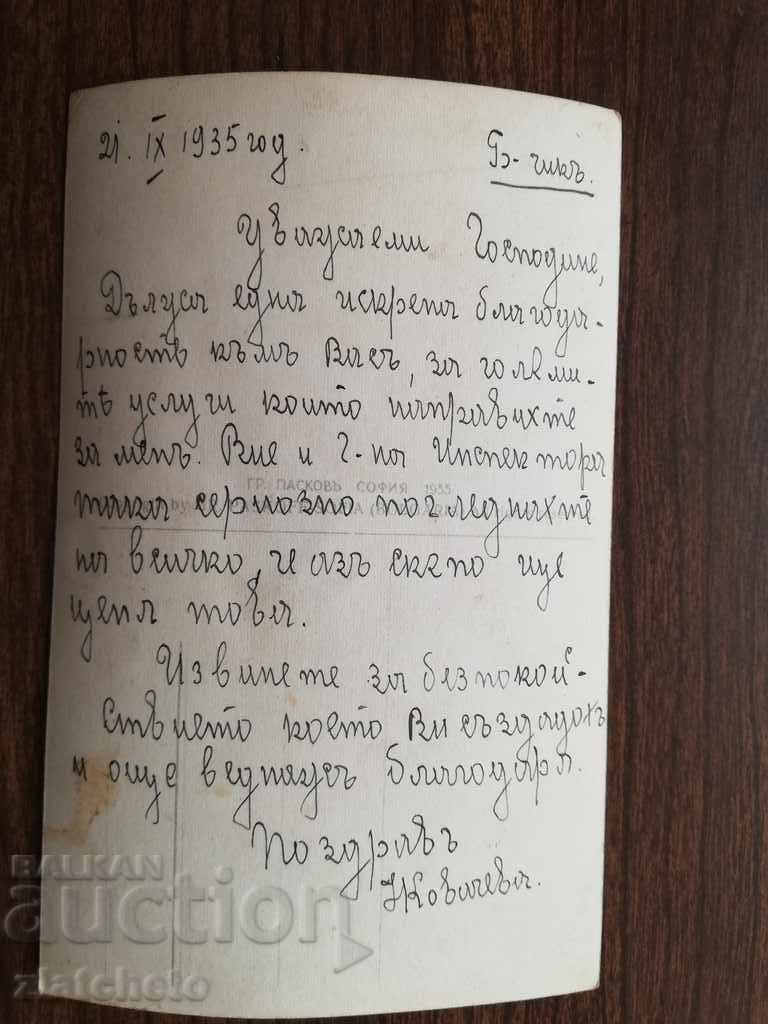 21. IX 1935 год.
Б-чикъ.
Уважаеми Господине,
Дължа една искрена благода-
рность къмъ Васъ, за големи-
тѣ услуги които направихте
за менъ. Вие и Г-на Инспектора
така сериозно погледнахте
на всичко, че азъ скѫпо ще
ценя това.
Извинете за безпокой-
ствието което Ви създадохъ
и още веднажъ благодаря.
Поздравъ
Ковачева.
ГР. ПАСКОВЪ СОФИЯ 1935
BALKAN
auction
zlatcheto